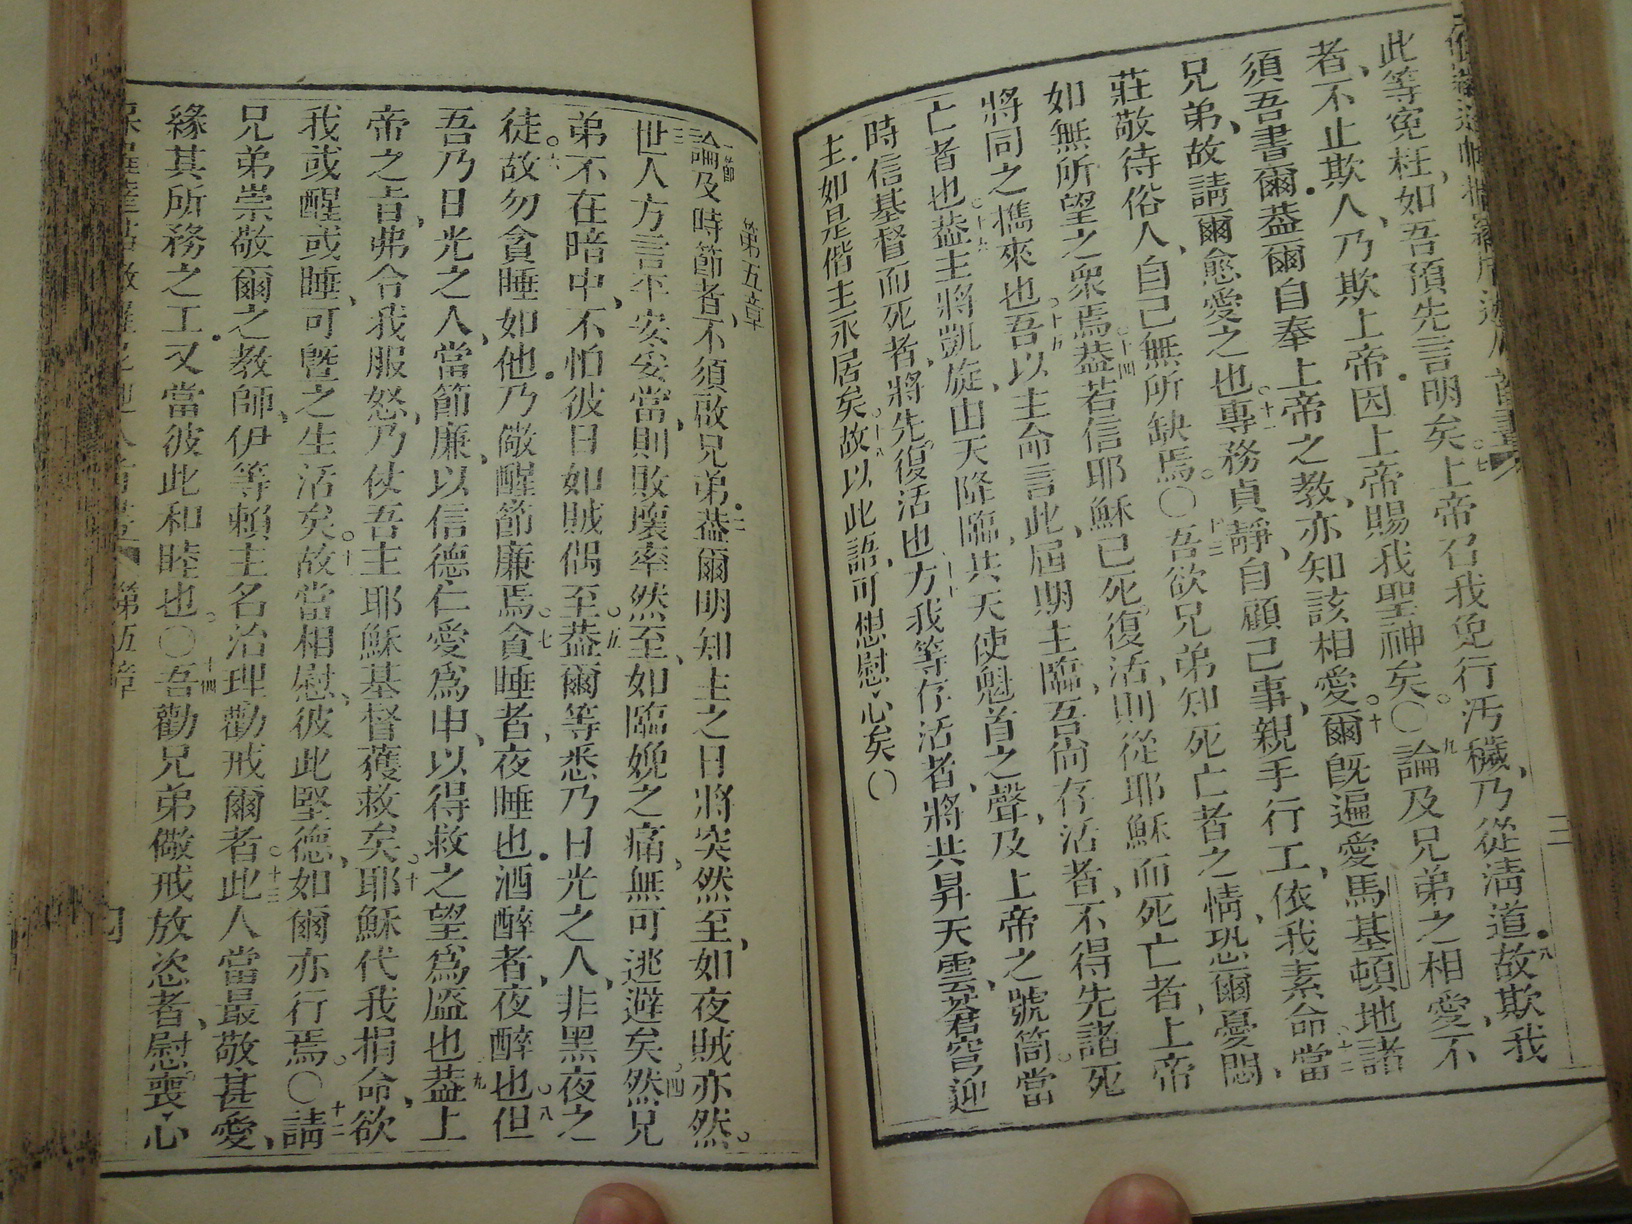 此等寃枉、如吾預先言明矣。七上帝召我免行汚穢、乃從淸道。八故欺我
者、不止欺人、乃欺上帝、因上帝賜我聖神矣。○九論及兄弟之相愛、不
須吾書爾、葢爾自奉上帝之教、亦知該相愛。十爾旣遍愛馬基頓地諸
兄弟、故請爾愈愛之也。十一專務貞靜、自顧己事、親手行工、依我素命、十二當
莊敬待俗人、自己無所缺焉。○十三吾欲兄弟知死亡者之情、恐爾憂悶、
如無所望之衆焉。十四葢若信耶穌已死復活、則從耶穌而死亡者、上帝
將同之擕來也。十五吾以主命言此、屆期主臨、吾尙存活者、不得先諸死
亡者也。十六葢主將凱旋、由天降臨、共天使魁首之聲、及上帝之號筒、當
時信基督而死者、將先復活也。十七方我等存活者、將共昇天雲蒼穹迎
主、如是偕主永居矣。十八故以此語、可慰心矣○
第五章
一節論及時節者、不須啟兄弟。二葢爾明知主之日將突然至、如夜賊亦然。
三世人方言平安妥當、則敗壞率然至、如臨娩之痛、無可逃避矣。四然兄
弟不在暗中、不怕彼日如賊偶至。五葢爾等悉乃日光之人、非黑夜之
徒。六故勿貪睡如他、乃儆醒節廉焉。七貪睡者、夜睡也、酒醉者、夜醉也。八但
吾乃日光之人、當節廉、以信德仁愛爲甲、以得救之望爲盔也。九葢上
帝之旨、弗令我服怒、乃仗吾主耶穌基督獲救矣。十耶穌代我捐命、欲
我或醒或睡、可曁之生活矣。十一故當相慰、彼此堅德、如爾亦行焉。○十二請
兄弟崇敬爾之教師、伊等賴主名治理勸戒爾者。十三此人當最敬甚愛、
緣其所務之工、又當彼此和睦也。○十四吾勸兄弟儆戒放恣者、慰喪心
第五章
四